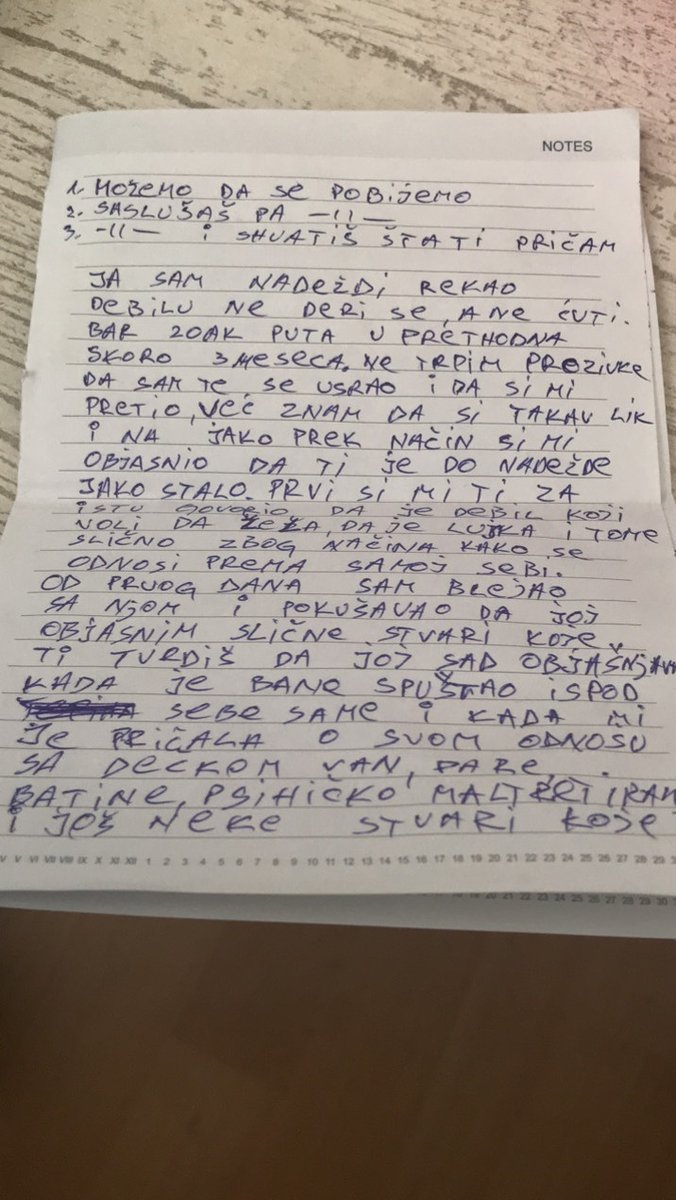 NOTES
1. MOŽEMO DA SE POBIJEMO
2. SASLUŠAŠ PA -11-
3. -11- I SHVATIŠ ŠTA TI PRIČAM
JA SAM NADEŽDI REKAO
DEBILU NE DERI SE, A NE ĆUTI.
BAR 20AK PUTA U PRETHODNA
SKORO 3 MESECA. NE TRPIM PROZIVKE
DA SAM TE SE USRAO I DA SI MI
PRETIO, VEĆ ZNAM DA SI TAKAV LIK
I NA JAKO PREK NAČIN SI MI
OBJASNIO DA TI JE DO NADEŽDE
JAKO STALO. PRVI SI MI TI ZA
ISTU GOVORIO DA JE DEBIL KOJI
VOLI DA DA JE I TOME
SLIČNO ZBOG NAČINA KAKO SE
ODNOSI PREMA SAMOJ SEBI.
OD PRVOG DANA SAM BLEJAO
SA NJOM I POKUŠAVAO DA JOJ
OBJASNIM SLIČNE STVARI KOJE
TI TVRDIŠ DA JOJ SAD OBJAŠNJAV
KADA JE BANE SPUŠTAO ISPOD
SEBE SAME I KADA MI
JE PRIČALA O SVOM ODNOSU
SA DECKOM VAN, PARE,
BATINE, PSIHIČKO MALTRETIRAN
I JOŠ NEKE STVARI KOJE
V V VI VII VIII IX X XI XII 1 2 3 4 5 6 7 8 9 10 11 12 13 14 15 16 17 18 19 20 21 22 23 24 25 26 27 28 29 3
20 21 22 23 24 25 26 27 28 29 30